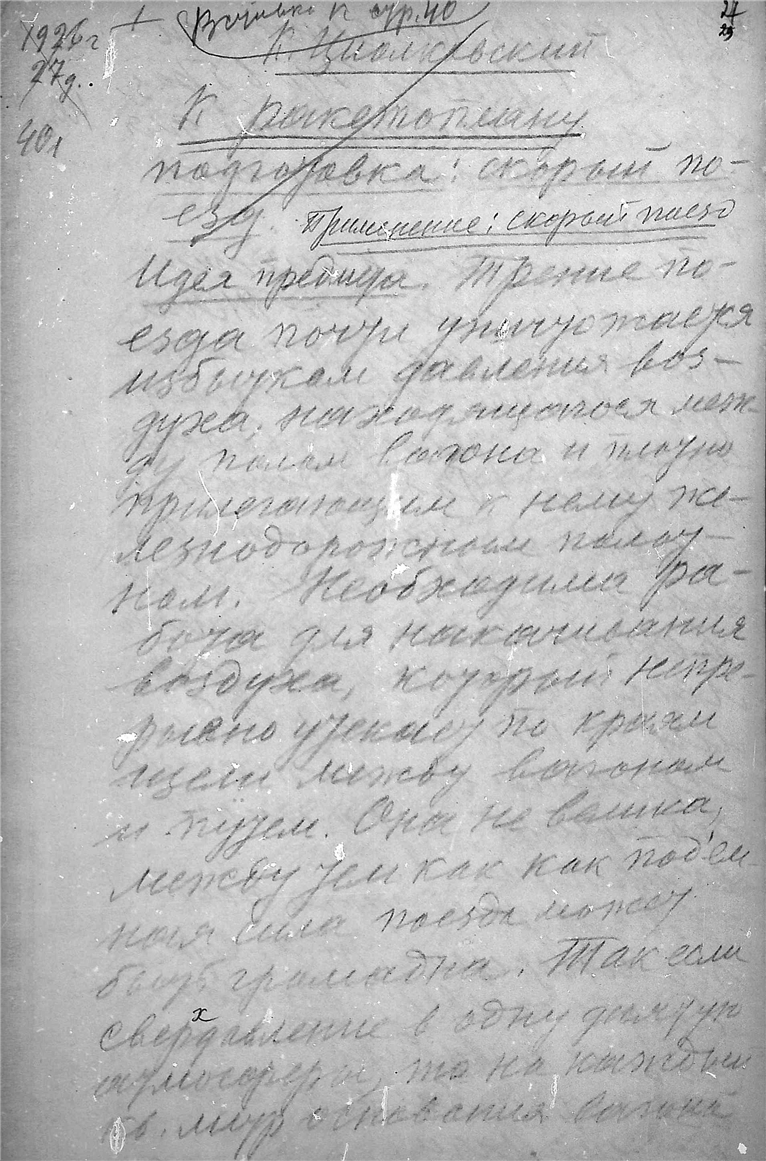 + Вставка к стр. 40
27
25
1926 г
27 д.
40 л
К. Циолковский
К ракетоплану
подготовка: скорый по-
езд. Применение: скорый поезд
Идея прибора. Трение по-
езда почти уничтожается
избытком давления воз-
духа, находящагося меж-
ду полом вагона и плотно
прилегающим к нему же-
лезнодорожным полот-
ном. Необходима ра-
бота для накачивания
воздуха, который непре-
рывно утекает по краям
щели между вагоном
и путем. Она не велика,
между тем как как подъем-
ная сила поезда может
быть громадна. Так если
сверхдавление в одну десятую
атмосферы, то на каждый
кв. метр основания вагона